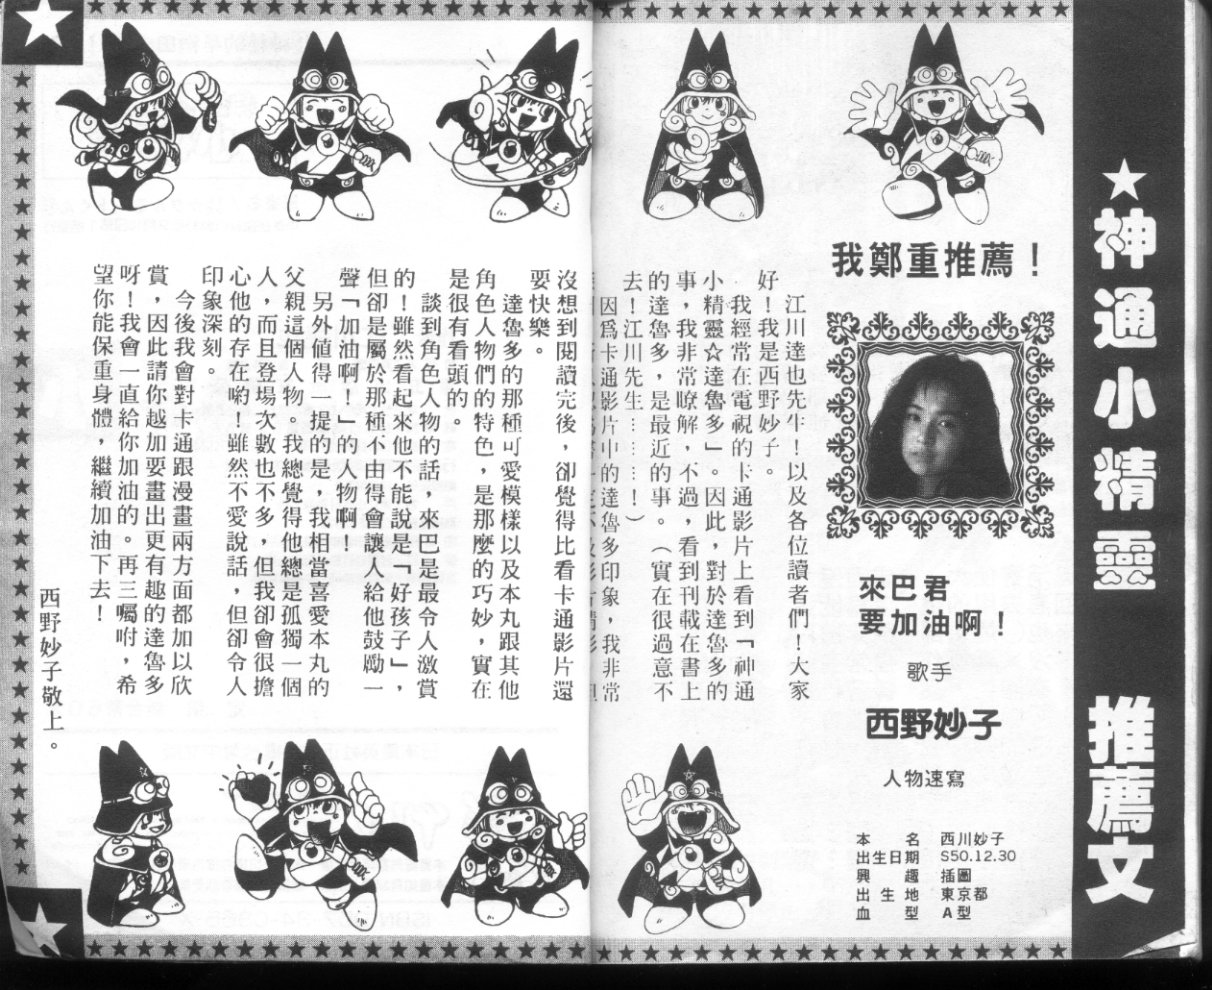 ★神通小精靈 推薦文
我鄭重推薦！
來巴君
要加油啊！
歌手
西野妙子
人物速寫
本名 西川妙子
出生日期 S50.12.30
興趣 插圖
出生地 東京都
血型 A型
江川達也先生！以及各位讀者們！大家
好！我是西野妙子。
我經常在電視的卡通影片上看到「神通
小精靈☆達魯多」。因此，對於達魯多的
事，我非常瞭解，不過，看到刊載在書上
的達魯多，是最近的事。（實在很過意不
去！江川先生………！）
因為卡通影片中的達魯多印象，我非常
沒想到閱讀完後，卻覺得比看卡通影片還
要快樂。
達魯多的那種可愛模樣以及本丸跟其他
角色人物們的特色，是那麼的巧妙，實在
是很有看頭的。
談到角色人物的話，來巴是最令人激賞
的！雖然看起來他不能說是「好孩子」，
但卻是屬於那種不由得會讓人給他鼓勵一
聲「加油啊！」的人物啊！
另外值得一提的是，我相當喜愛本丸的
父親這個人物。我總覺得他總是孤獨一個
人，而且登場次數也不多，但我卻會很擔
心他的存在喲。雖然不愛說話，但卻令人
印象深刻。
今後我會對卡通跟漫畫兩方面都加以欣
賞，因此請你越加要畫出更有趣的達魯多
呀！我會一直給你加油的。再三囑咐，希
望你能保重身體，繼續加油下去！
西野妙子敬上。